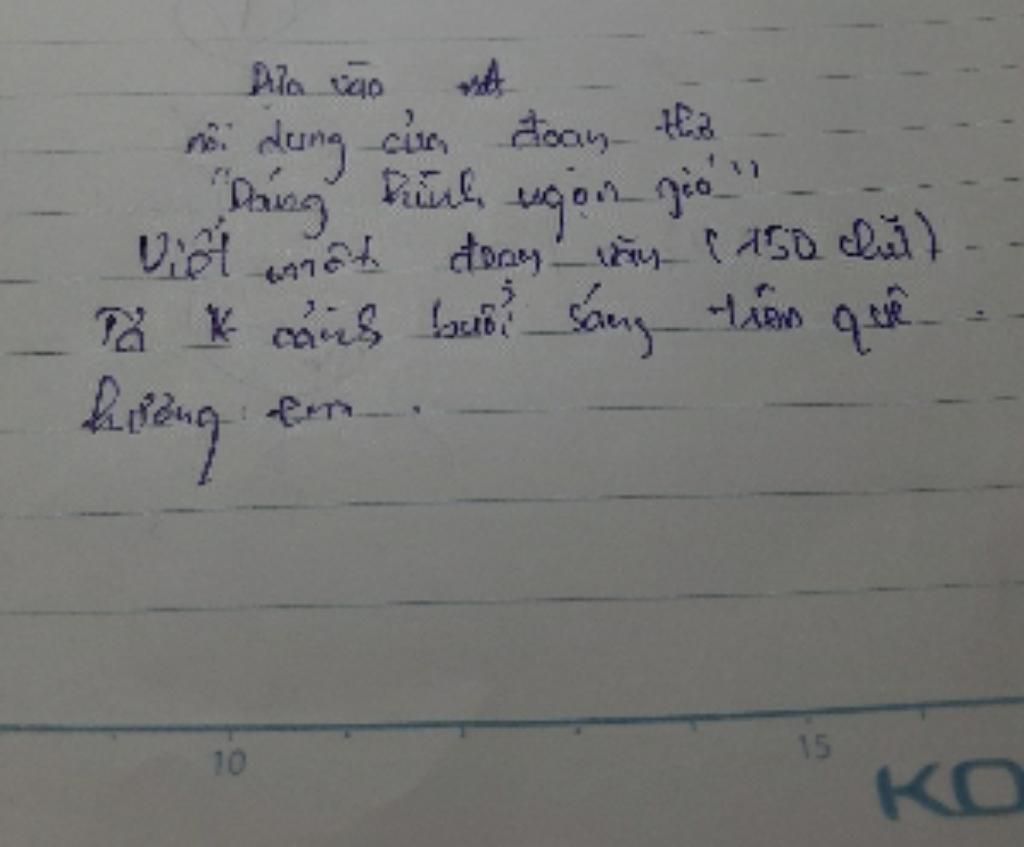 Dựa vào
nội dung của đoạn thơ
"Dáng hình ngọn gió"
Viết một đoạn văn (150 chữ)
Tả cảnh buổi sáng trên quê
hương em.
10 15
KO